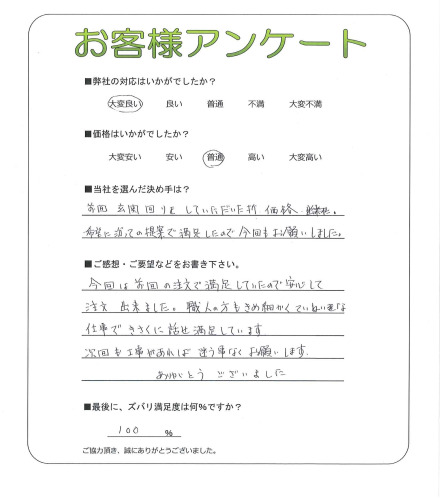 お客様アンケート
■弊社の対応はいかがでしたか?
大変良い 良い 普通 不満 大変不満
■価格はいかがでしたか?
大変安い 安い 普通 高い 大変高い
■当社を選んだ決め手は?
前回 玄関回りをしていただいた時 価格
希望に沿っての提案で満足したので今回もお願いしました。
■ご感想・ご要望などをお書き下さい。
今回は前回の注文で満足していたので安心して
注文 出来ました。職人の方もきめ細かくていねいな
仕事で きさくに話せ 満足しています
次回も工事があれば 迷う事なくお願いします.
ありがとう ございました
■最後に、ズバリ満足度は何%ですか?
100 %
ご協力頂き、誠にありがとうございました。